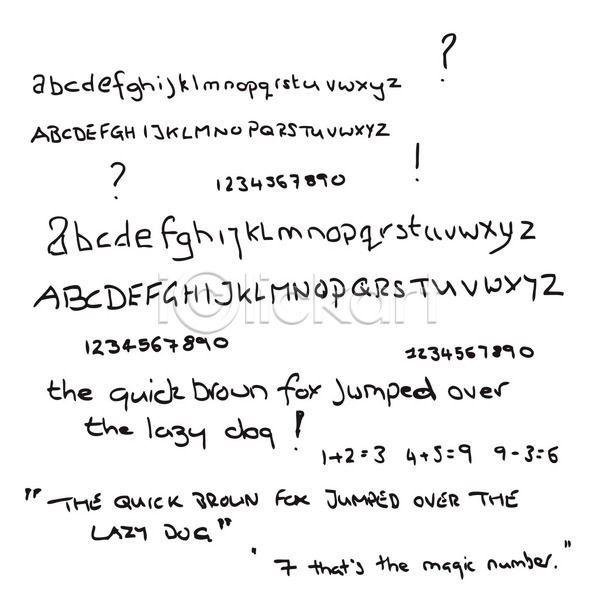 ?
abcdefghijklmnopqrstuvwxyz
ABCDEFGHIJKLMNOPQRSTUVWXYZ
? !
1234567890
abcdefghijkLmnopqrstuvwxyz
ABCDEFGHIJKLMNOPQRSTUVWXYZ
1234567890 1234567890
the quick brown fox jumped over
the lazy dog !
1+2=3 4+5=9 9-3=6
"THE QUICK BROWN FOX JUMPED OVER THE
LAZY DOG"
" 7 that's the magic number."